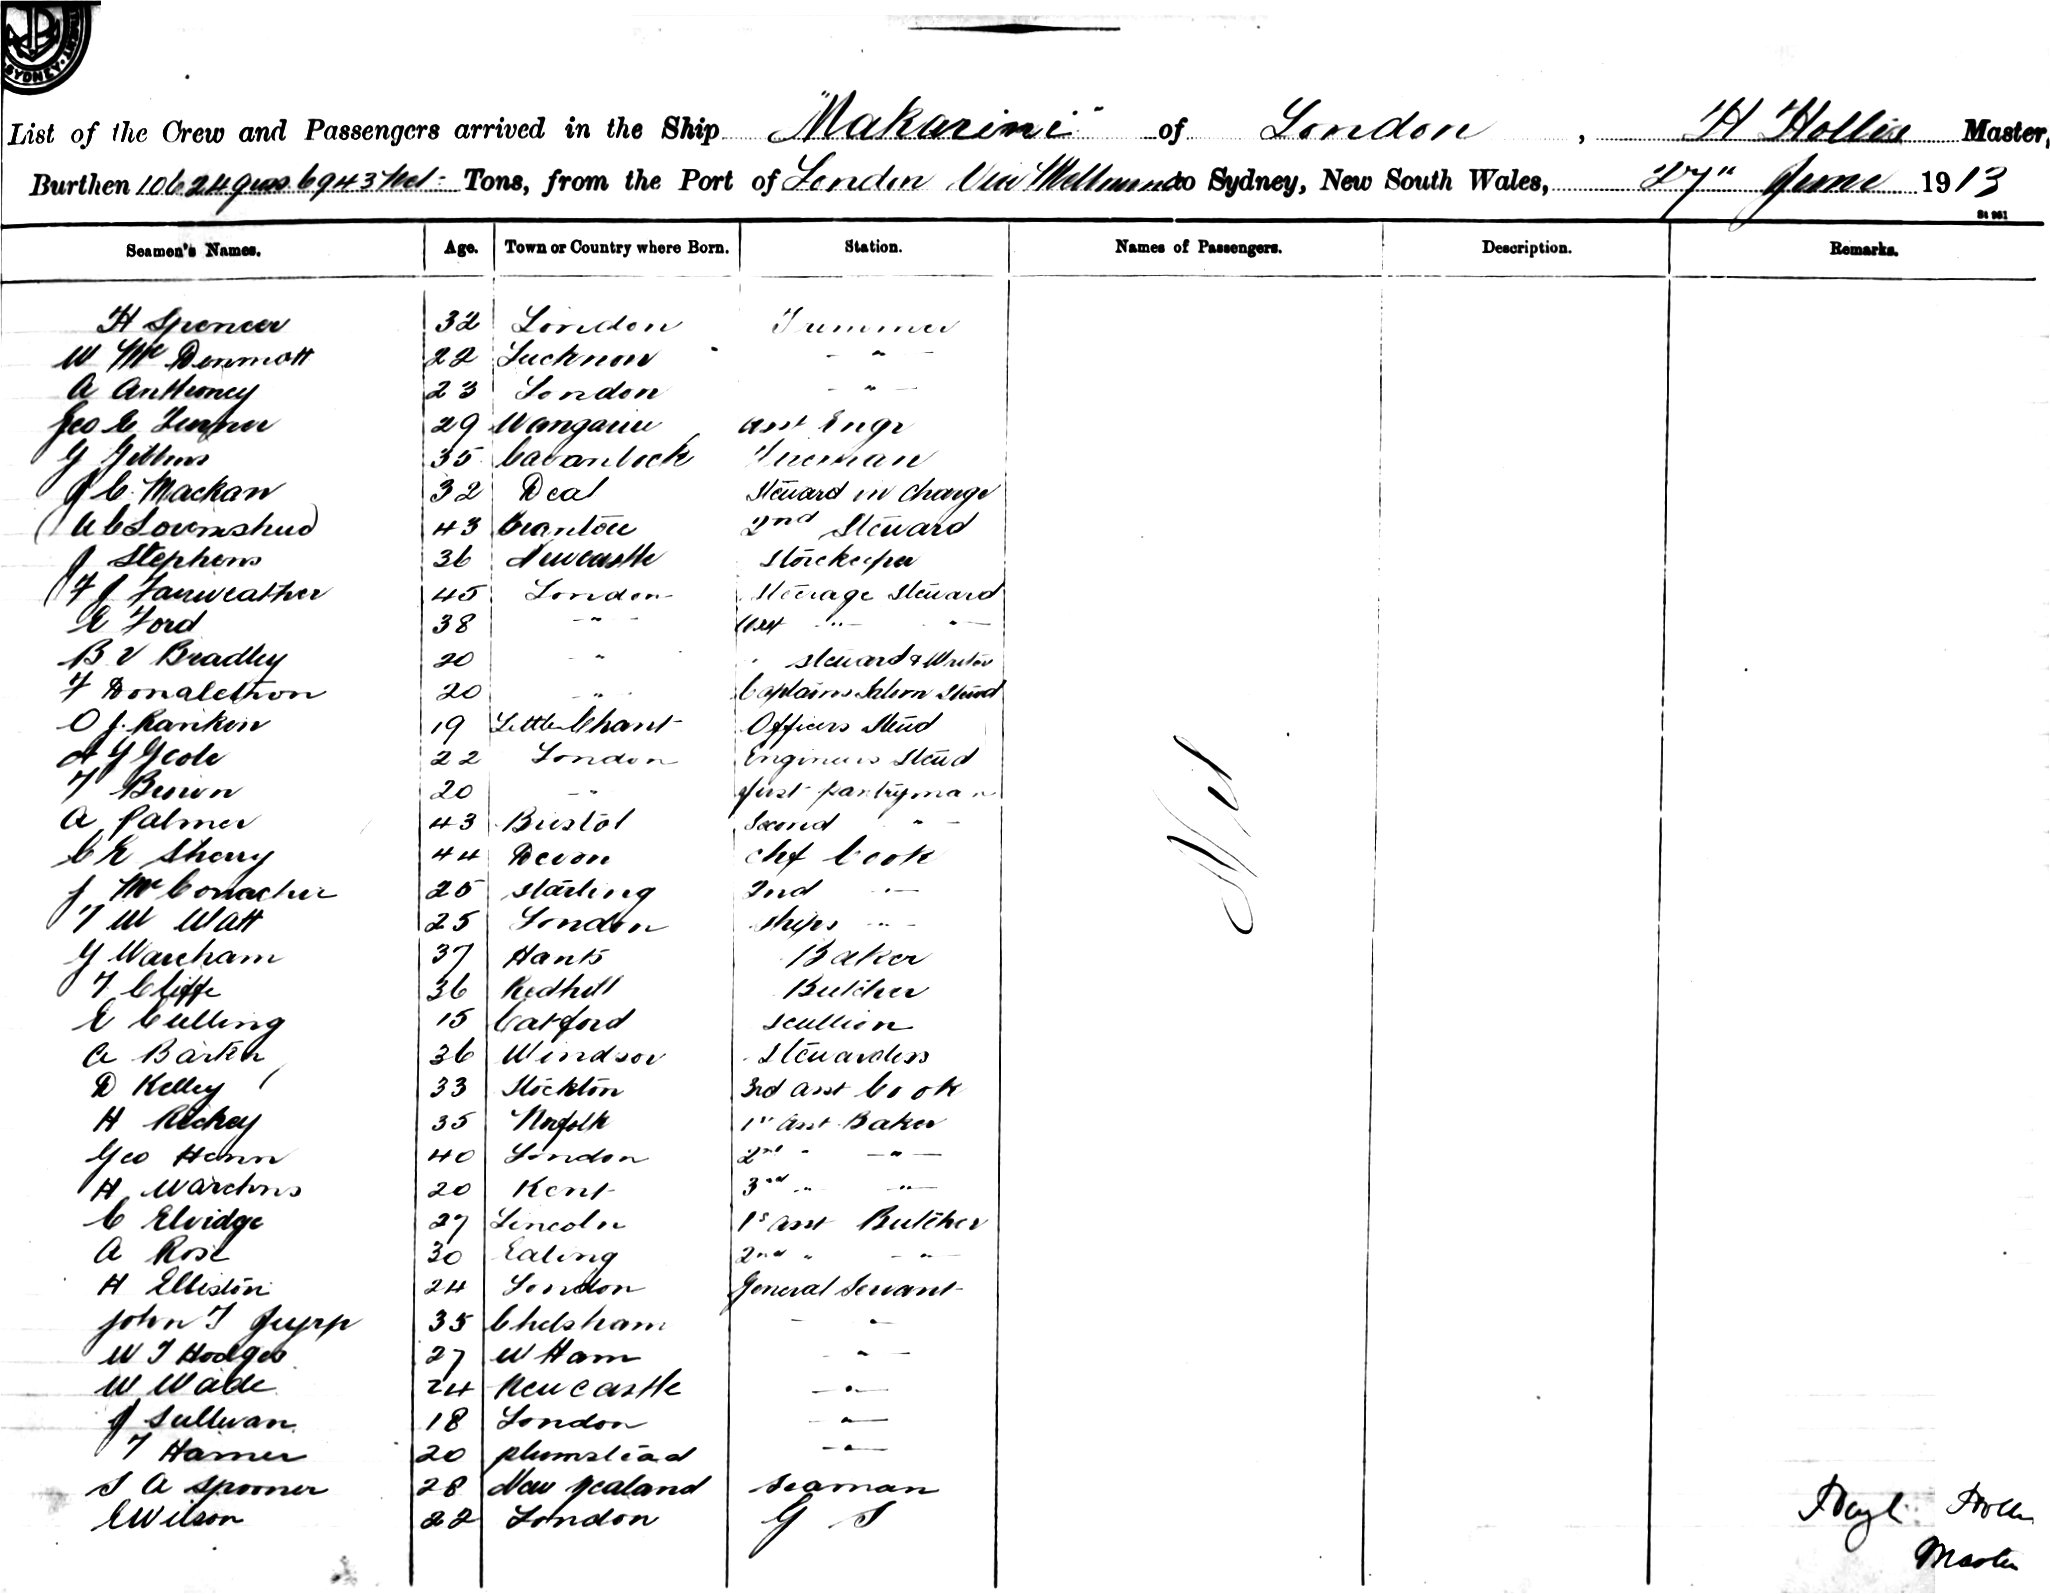 SYDNEY
List of the Crew and Passengers arrived in the Ship "Makarini" of London, H Hollis Master,
Burthen 10624 gross 6943 Net Tons, from the Port of London Via Melbourne to Sydney, New South Wales, 27" June 1913
St 961
Seamen's Names. Age. Town or Country where Born. Station. Names of Passengers. Description. Remarks.
H Spencer 32 London Trimmer
W McDermott 22 Lucknow - " -
A Anthoney 23 London - " -
Geo C 29 Wangarei asst Engr
G Gibbins 35 Fireman
J C Mackan 32 Deal Steward in charge
A C 43 2nd Steward
J Stephens 36 Newcastle Storekeeper
F J Fairweather 45 London Steerage Steward
E Ford 38 - " - asst - " - - " -
B V Bradley 20 - " - " Steward & Writer
F Donaldson 20 - " - Captains Saloon Steward
O J. Rankin 19 Little Chart Officers Steud
A G Geole 22 London Engineers Steud
F Brown 20 - " - first pantryman
A Palmer 43 Bristol Second - " -
C E Sherry 44 Devon chef Cook
J McConacher 25 Starling 2nd - " -
T W Watt 25 London Ships - " -
G Wareham 37 Hants Baker
T Cliffe 36 Redhill Butcher
E Culling 15 Catford Scullion
A Barten 36 Windsor Stewardess
D Kelley 33 Stockton 3rd asst Cook
H Richey 35 Norfolk 1st asst Baker
Geo Henn 40 London 2nd " - " -
H 20 Kent 3rd " - " -
C Elvidge 27 Lincoln 1st asst Butcher
A Rose 30 Ealing 2nd " - " -
H Elliston 24 London General Servant
John T Jupp 35 Chelsham - " -
W T Hodges 27 W Ham - " -
W Wade 24 Newcastle - " -
J Sullivan 18 London - " -
T Hamer 20 plumstead - " -
S A Spooner 28 New Zealand Seaman
E Wilson 22 London G S
Nil
Hollis
Master